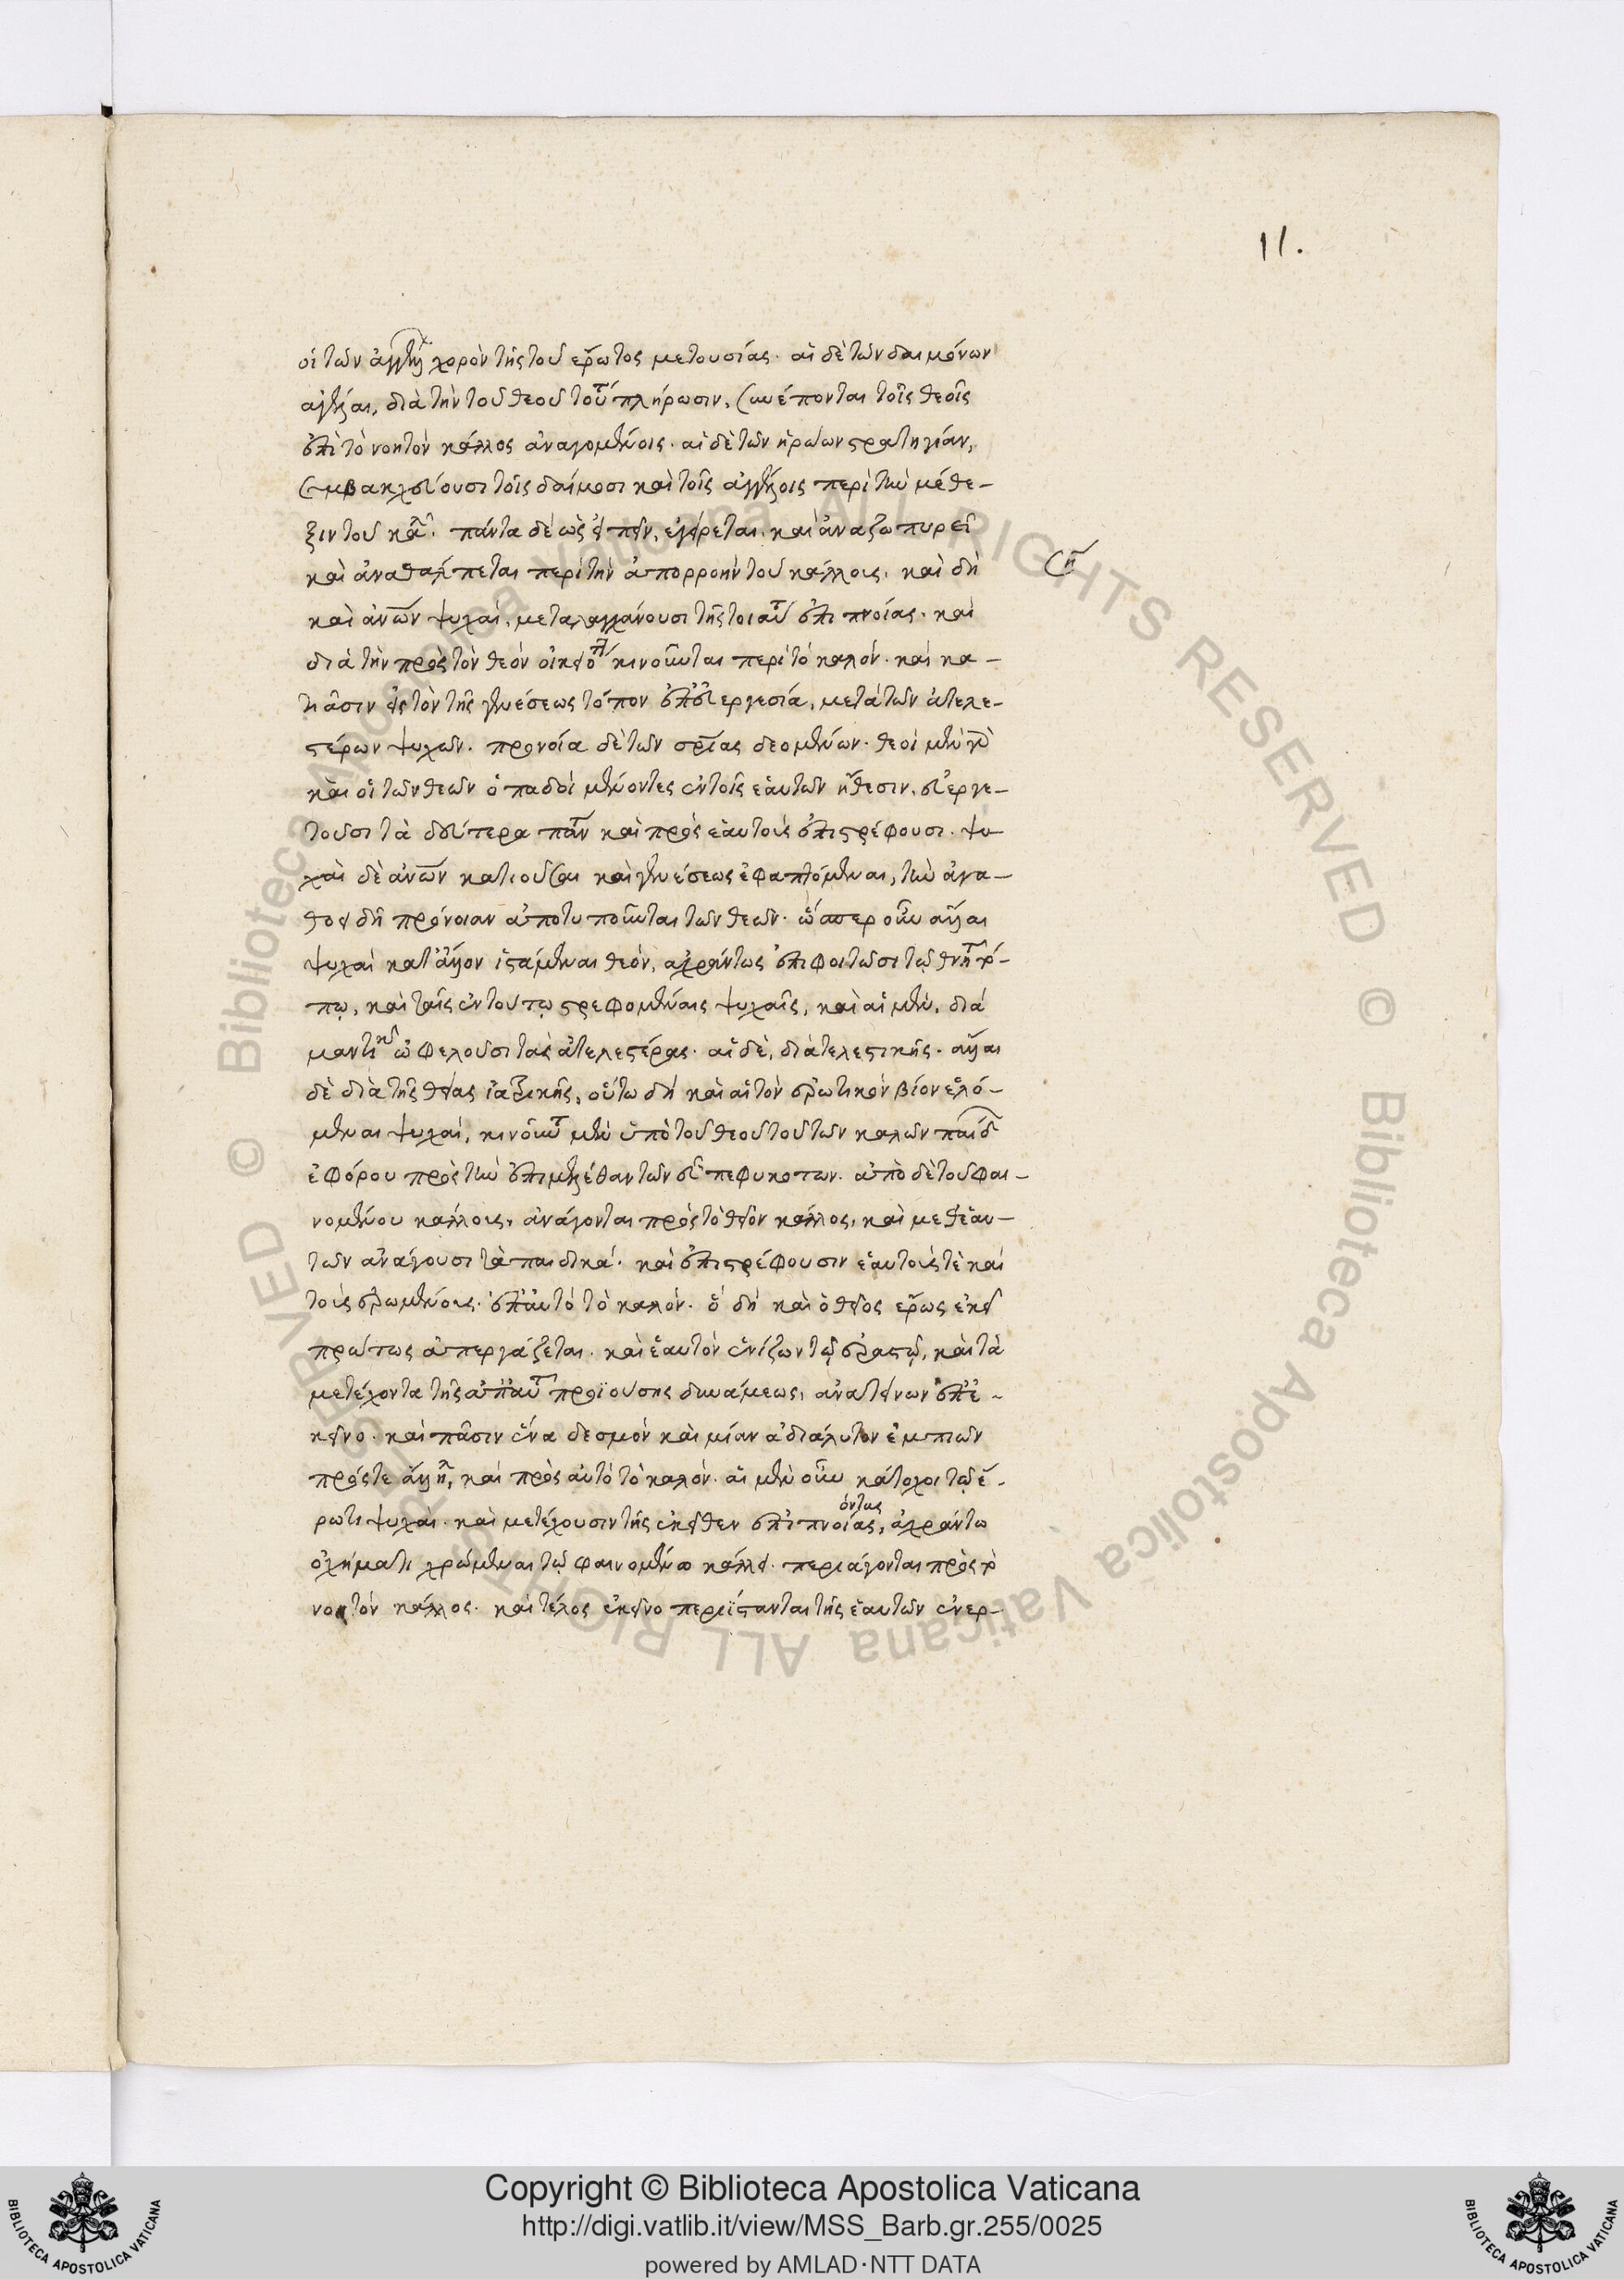 11.
οἱ τῶν ἀγγέλων χορὸν τῆς τοῦ ἔρωτος μετουσίας· αἱ δὲ τῶν δαιμόνων
ἀγέλαι, διὰ τὴν τοῦ θεοῦ τούτου πλήρωσιν, συνέπονται τοῖς θεοῖς
ἐπὶ τὸ νοητὸν κάλλος ἀναγομένοις· αἱ δὲ τῶν ἡρώων στρατηγίαν,
συμβακχεύουσι τοῖς δαίμοσι καὶ τοῖς ἀγγέλοις περὶ τὴν μέθε-
ξιν τοῦ καλοῦ· πάντα δὲ ὡς εἰπεῖν, ἐγείρεται, καὶ ἀναζωπυρεῖ
καὶ ἀναθάλπεται περὶ τὴν ἀπορροὴν τοῦ κάλλους, καὶ δὴ
καὶ ἀνθρώπων ψυχαὶ, μεταλαγχάνουσι τῆς τοιαύτης ἐπιπνοίας· καὶ
διὰ τὴν πρὸς τὸν θεὸν οἰκειότητα κινοῦνται περὶ τὸ καλόν· καὶ κα-
τίασιν εἰς τὸν τῆς γενέσεως τόπον ἐπ' εὐεργεσίᾳ, μετὰ τῶν ἀτελε-
στέρων ψυχῶν· προνοία δὲ τῶν σωτηρίας δεομένων· θεοὶ μὲν γὰρ
καὶ οἱ τῶν θεῶν ὀπαδοὶ μένοντες ἐν τοῖς ἑαυτῶν ἤθεσιν, εὐεργε-
τοῦσι τὰ δεύτερα πάντα καὶ πρὸς ἑαυτοὺς ἐπιστρέφουσι· ψυ-
χαὶ δὲ ἀνθρώπων κατιοῦσαι καὶ γενέσεως ἐφαπτόμεναι, τὴν ἀγα-
θοειδῆ πρόνοιαν ἀποτυποῦνται τῶν θεῶν· ὥσπερ οὖν ἄλλαι
ψυχαὶ κατ' ἄλλον ἱστάμεναι θεὸν, ἀχράντως ἐπιφοιτῶσι τῷ θνητῷ τό-
πῳ, καὶ ταῖς ἐν τούτῳ στρεφομέναις ψυχαῖς, καὶ αἱ μὲν, διὰ
μαντικῆς ὠφελοῦσι τὰς ἀτελεστέρας· αἱ δὲ, διὰ τελεστικῆς· ἄλλαι
δὲ διὰ τῆς θείας ἰατρικῆς, οὕτω δὴ καὶ αἱ τὸν ἐρωτικὸν βίον ἑλό-
μεναι ψυχαὶ, κινοῦνται μὲν ὑπὸ τοῦ θεοῦ τοῦ τῶν καλῶν παίδων
ἐφόρου πρὸς τὴν ἐπιμέλειαν τῶν εὖ πεφυκότων· ἀπὸ δὲ τοῦ φαι-
νομένου κάλλους, ἀνάγονται πρὸς τὸ θεῖον κάλλος, καὶ μεθ' ἑαυ-
τῶν ἀνάγουσι τὰ παιδικά· καὶ ἐπιστρέφουσιν ἑαυτούς τε καὶ
τοὺς ἐρωμένους· ἐπ' αὐτὸ τὸ καλὸν· ὃ δὴ καὶ ὁ θεῖος ἔρως ἐκεῖ
πρώτως ἀπεργάζεται· καὶ ἑαυτὸν ἑνίζων τῷ ἐραστῷ, καὶ τὰ
μετέχοντα τῆς ἀπ' αὐτοῦ προϊούσης δυνάμεως, ἀνατείνων ἐπ' ἐ-
κεῖνο· καὶ πᾶσιν ἕνα δεσμὸν καὶ μίαν ἀδιάλυτον ἐμποιῶν
πρός τε ἄλληλα, καὶ πρὸς αὐτὸ τὸ καλὸν· αἱ μὲν οὖν κάτοχοι τῷ ἔ-
ρωτι ψυχαὶ· καὶ μετέχουσιν τῆς ἐκεῖθεν ἐπιπνοίας, ὄντως ἀχράντῳ
ὀχήματι χρώμεναι τῷ φαινομένῳ κάλλει· περιάγονται πρὸς τὸ
νοητὸν κάλλος· καὶ τέλος ἐκεῖνο περιίστανται τῆς ἑαυτῶν ἐνερ-
Copyright © Biblioteca Apostolica Vaticana
http://digi.vatlib.it/view/MSS_Barb.gr.255/0025
powered by AMLAD·NTT DATA